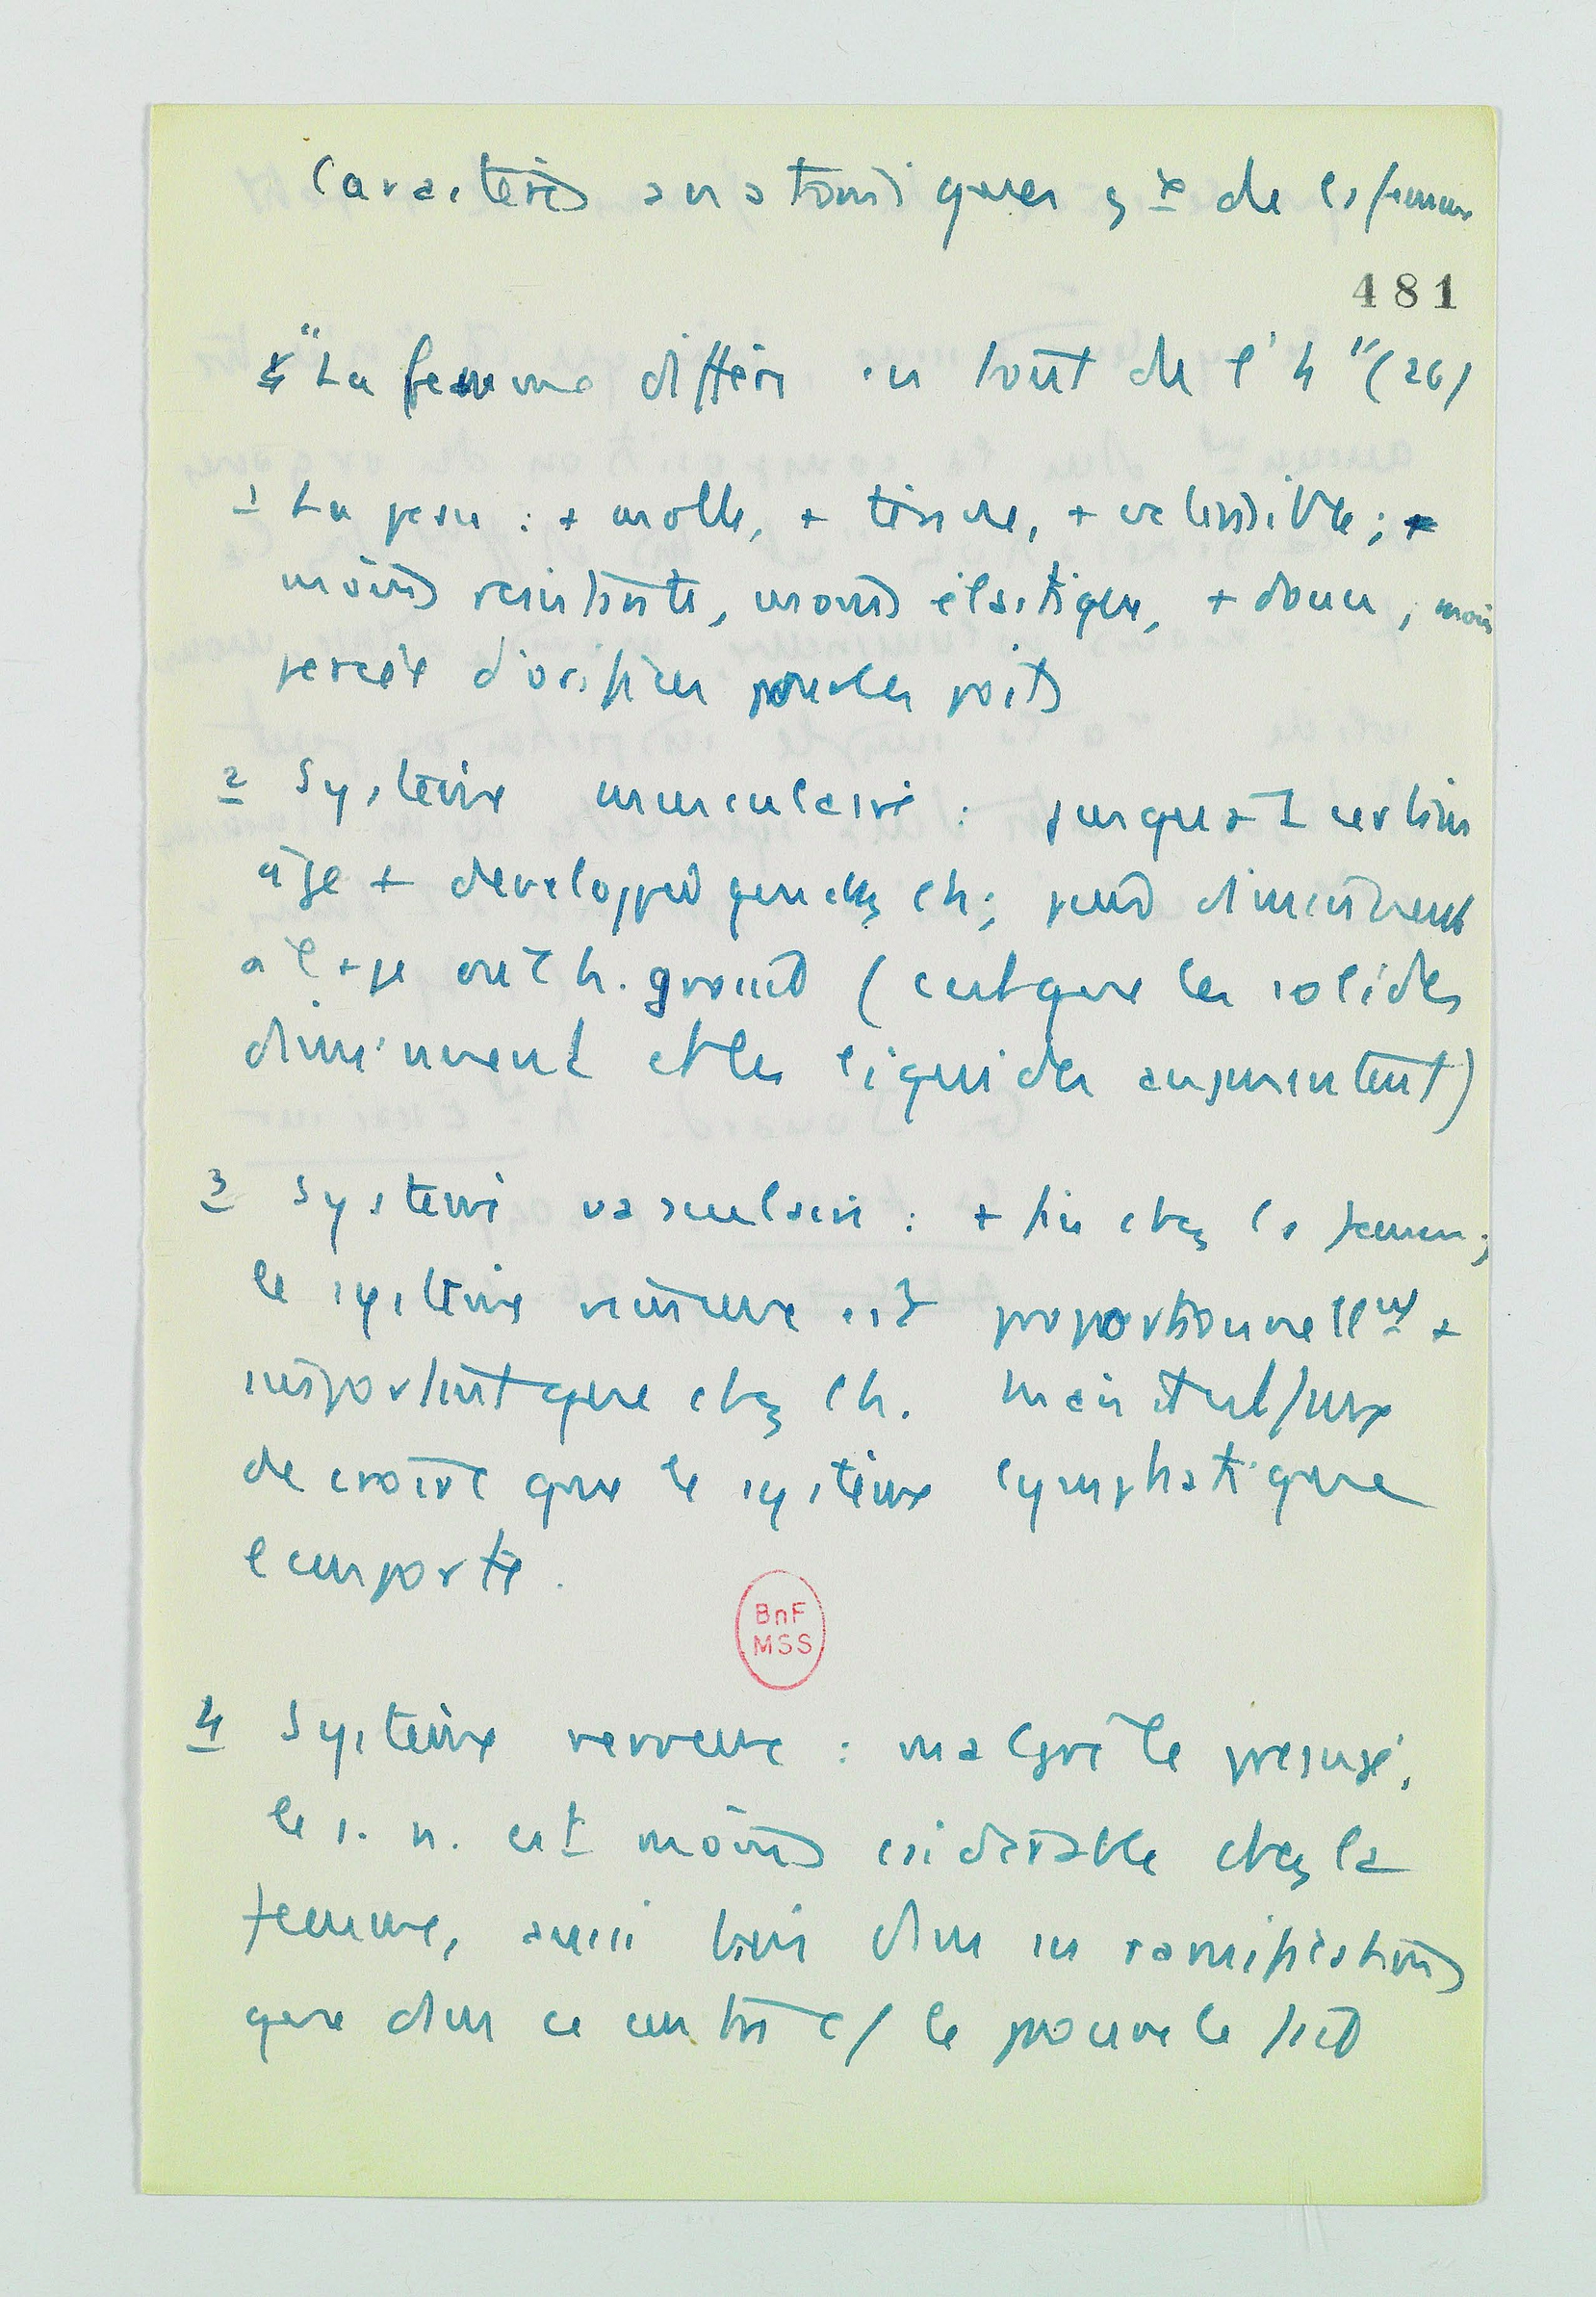 Caractères anatomiques gx de la femme
481
"La femme diffère en tout de l'h" (26)
1 La peau : + molle, + tenue, + extensible ;
moins résistante, moins élastique, + douce, moins
percée d'orifices pour les poils
2 Système musculaire : jusqu'à 1 certain
âge + développé que chez l'h ;
diminuent et les liquides augmentent)
3 Système vasculaire : + fin chez la femme ;
le système veineux est proportionnellemt +
important que chez l'h. Mais il est faux
de croire que le système lymphatique
l'emporte.
BnF
MSS
4 Système nerveux : malgré le préjugé,
le s. n. est moins csidérable chez la
femme, aussi bien dans ses ramifications
que dans ce centre c/ le prouve le